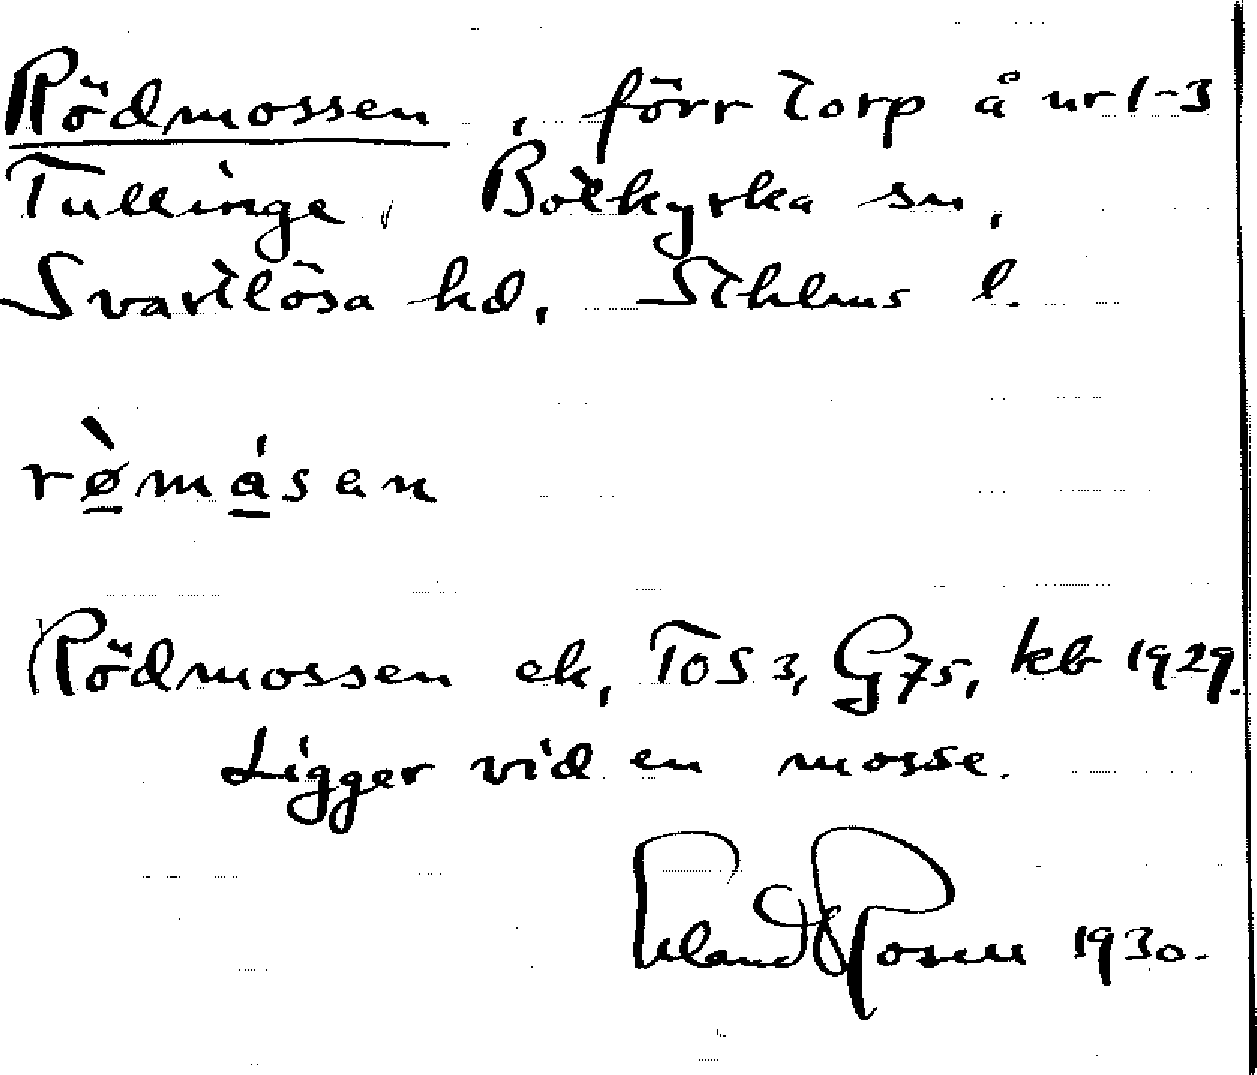 Rödmossen, förr torp å nr 1-3
Tullinge, Botkyrka sn,
Svartlösa hd, Sthlms l.
rø̀másan
Rödmossen ek, TOS 3, G75, kb 1929.
Ligger vid en mosse.
Erland Rosell 1930.